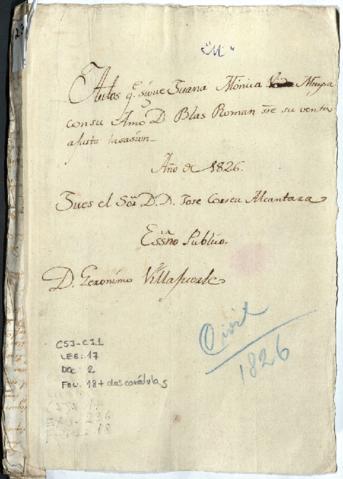 "M"
Autos q.e sigue Juana Mónica Murpa
con su Amo D. Blas Roman sre su venta
a justa tasasion_
Año de 1826.
Jues el Sor D. D. Jose Correa Alcantara
Essno Publico.
D. Geronimo Villafuerte
Civil
1826
CSJ-CI1
LEG: 17
DOC: 2
FOL: 18+dos carátulas